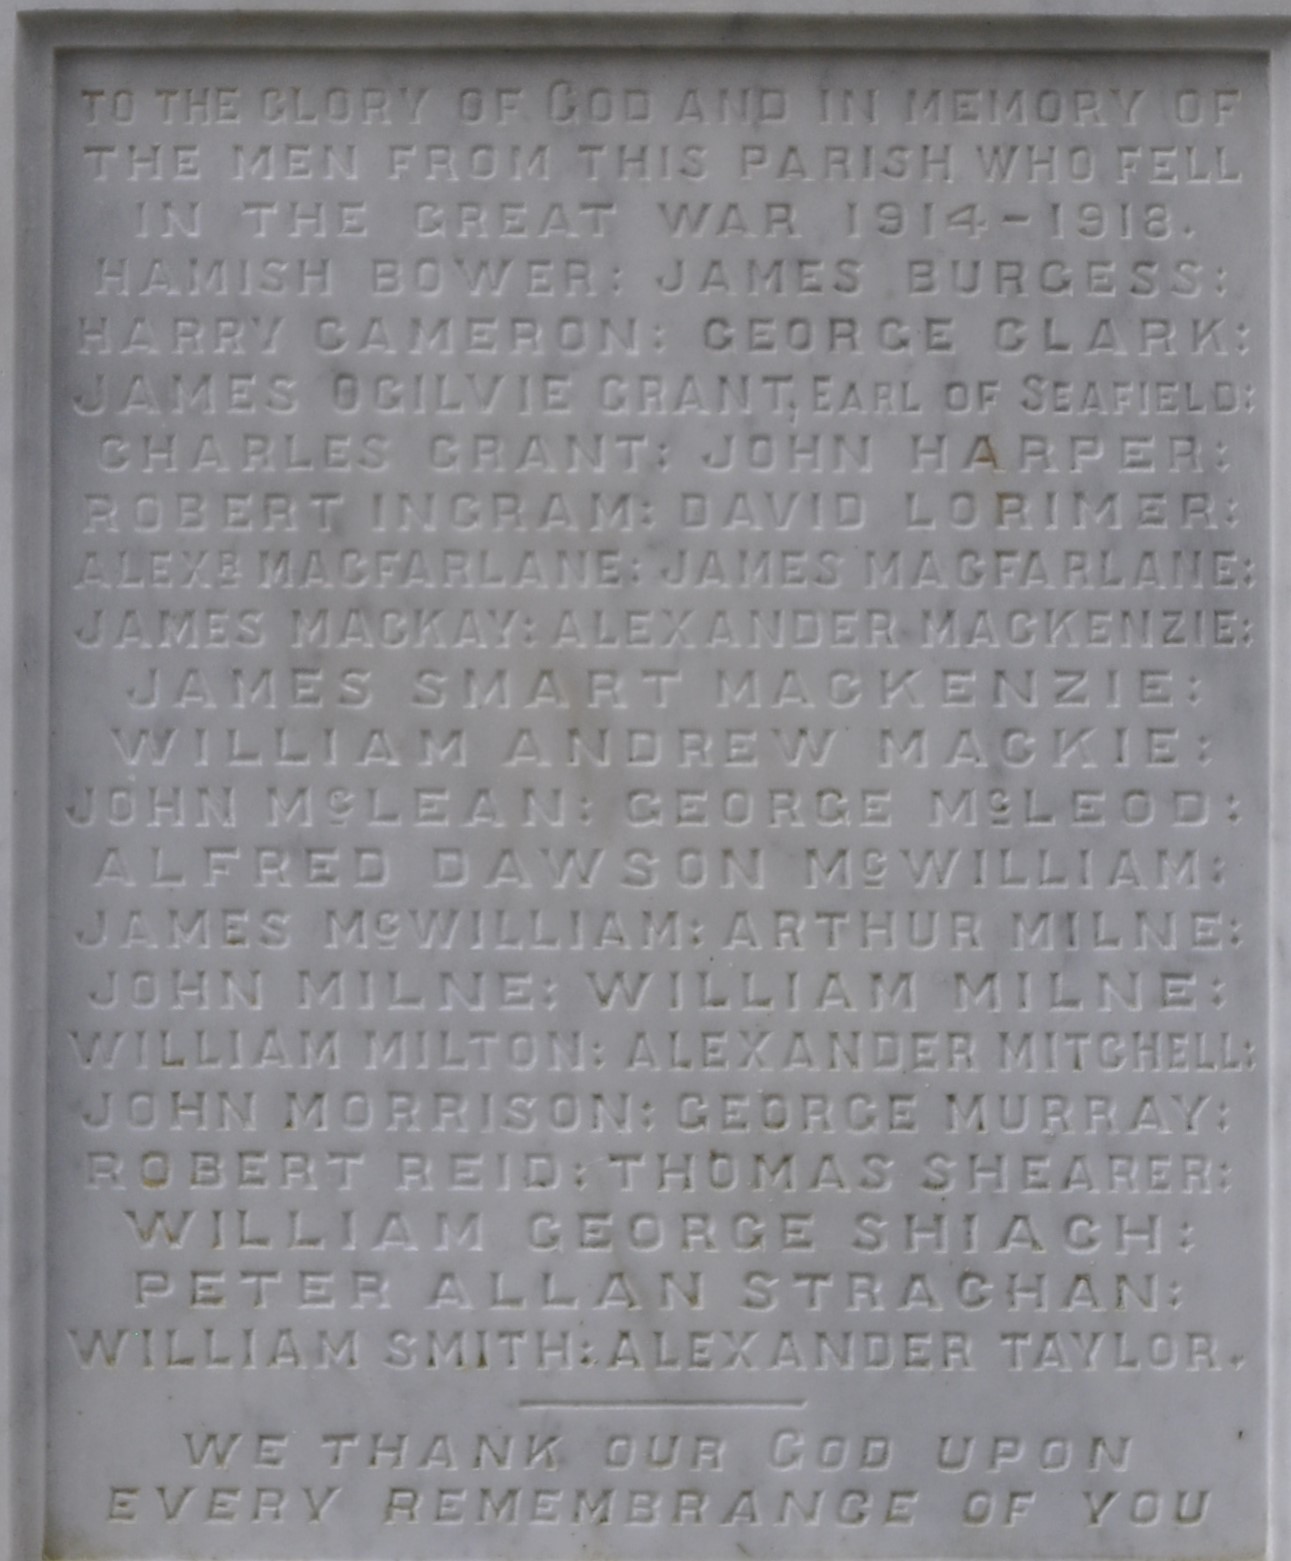 TO THE GLORY OF GOD AND IN MEMORY OF
THE MEN FROM THIS PARISH WHO FELL
IN THE GREAT WAR 1914-1918.
HAMISH BOWER: JAMES BURGESS:
HARRY CAMERON: GEORGE CLARK:
JAMES OGILVIE GRANT, EARL OF SEAFIELD:
CHARLES GRANT: JOHN HARPER:
ROBERT INGRAM: DAVID LORIMER:
ALEXR MACFARLANE: JAMES MACFARLANE:
JAMES MACKAY: ALEXANDER MACKENZIE:
JAMES SMART MACKENZIE:
WILLIAM ANDREW MACKIE:
JOHN MCLEAN: GEORGE MCLEOD:
ALFRED DAWSON MCWILLIAM:
JAMES MCWILLIAM: ARTHUR MILNE:
JOHN MILNE: WILLIAM MILNE:
WILLIAM MILTON: ALEXANDER MITCHELL:
JOHN MORRISON: GEORGE MURRAY:
ROBERT REID: THOMAS SHEARER:
WILLIAM GEORGE SHIACH:
PETER ALLAN STRACHAN:
WILLIAM SMITH: ALEXANDER TAYLOR.
WE THANK OUR GOD UPON
EVERY REMEMBRANCE OF YOU